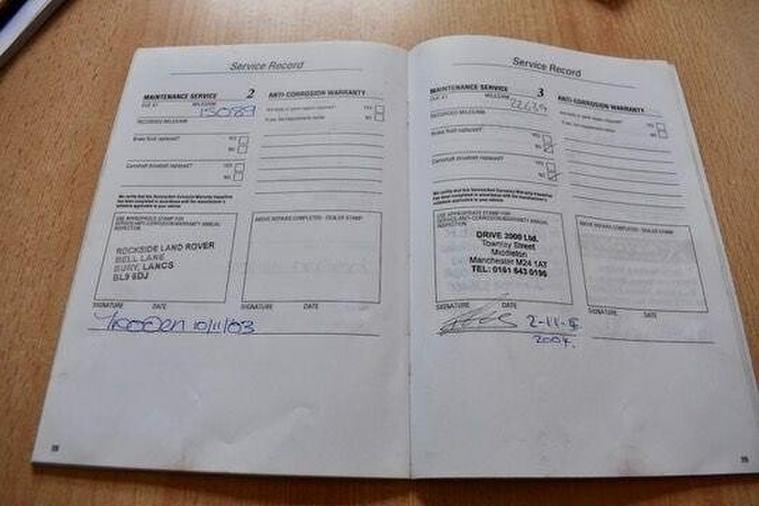 Service Record
MAINTENANCE SERVICE 2
DUE AT MILES/KM
15089
RECORDED MILES/KM
Brake fluid replaced? YES
NO
Camshaft drivebelt replaced? YES
NO
We certify that this Service/Anti Corrosion Warranty Inspection
has been completed in accordance with the manufacturer's
schedule applicable to your vehicle
USE APPROPRIATE STAMP FOR
SERVICE/ANTI-CORROSION/WARRANTY ANNUAL
INSPECTION
ROCKSIDE LAND ROVER
BELL LANE
BURY, LANCS
BL9 6DJ
SIGNATURE DATE
10/11/03
ANTI-CORROSION WARRANTY
YES
NO
ABOVE REPAIRS COMPLETED - DEALER STAMP
SIGNATURE DATE
Service Record
MAINTENANCE SERVICE 3
DUE AT MILES/KM
22639
RECORDED MILES/KM
Brake fluid replaced? YES
NO
Camshaft drivebelt replaced? YES
NO
We certify that this Service/Anti Corrosion Warranty Inspection
has been completed in accordance with the manufacturer's
schedule applicable to your vehicle
USE APPROPRIATE STAMP FOR
SERVICE/ANTI-CORROSION/WARRANTY ANNUAL
INSPECTION
DRIVE 2000 Ltd.
Townley Street
Middleton
Manchester M24 1AT
TEL: 0161 643 0196
SIGNATURE DATE
2-11-
2004.
ANTI-CORROSION WARRANTY
YES
NO
ABOVE REPAIRS COMPLETED - DEALER STAMP
SIGNATURE DATE